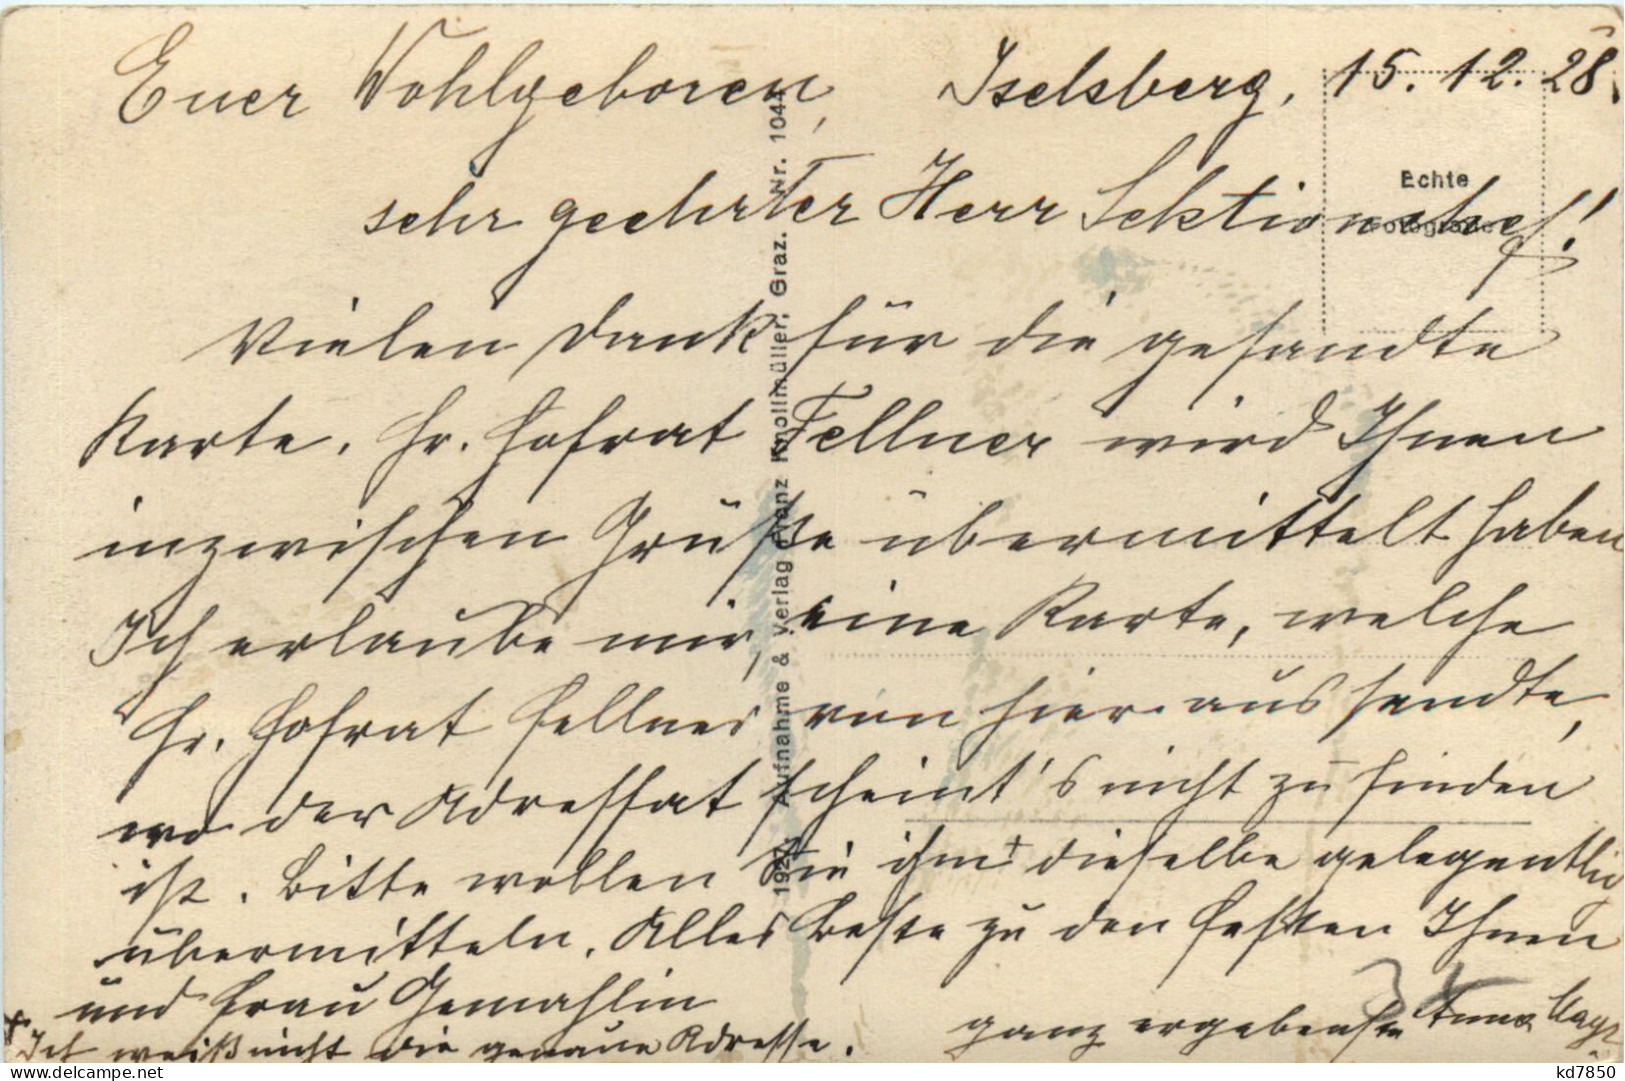 Euer Wohlgeboren, Iselsberg, 15.12.28.
sehr geehrter Herr Sektionschef!
Vielen Dank für die gesandte
Karte. Hr. Hofrat Fellner wird Ihnen
inzwischen Grüße übermittelt haben
Ich erlaube mir, eine Karte, welche
Hr. Hofrat Fellner von hier aus sandte,
wo der Adressat scheint's nicht zu finden
ist. Bitte wollen Sie ihm + dieselbe gelegentlich
übermitteln. Alles Beste zu den Festen Ihnen
und Frau Gemahlin
ganz ergebenste Anna
+ Ich weiß nicht die genaue Adresse.
Echte
Fotografie
1927. Aufnahme & Verlag Franz Knollmüller, Graz. Nr. 1044
kd7850